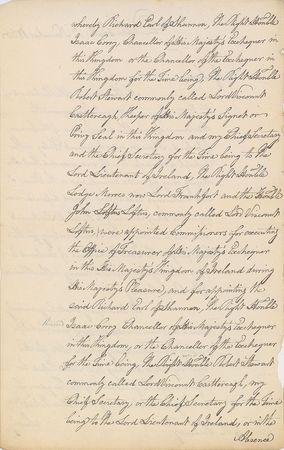 whereby Richard Earl of Shannon, The Right Honble
Isaac Corry Chancellor of His Majesty's Exchequer in
this Kingdom or the Chancellor of the Exchequer in
this Kingdom for the Time being The Right Honble
Robert Stewart commonly called Lord Viscount
Castlereagh Keeper of His Majesty's Signet or
Privy Seal in this Kingdom and my Chief Secretary
and the Chief Secretary for the Time being to the
Lord Lieutenant of Ireland, The Right Honble
Lodge Morres now Lord Frankfort and the Honble
John Loftus Loftus, commonly called Lord Viscount
Loftus, were appointed Commissioners for executing
the Office of Treasurer of His Majesty's Exchequer
in this His Majesty's Kingdom of Ireland during
His Majesty's Pleasure, and for appointing the
said Richard Earl of Shannon, The Right Honble
Isaac Corry Chancellor of His Majesty's Exchequer
in this Kingdom, or the Chancellor of the Exchequer
for the Time being, The Right Honble Robert Stewart
commonly called Lord Viscount Castlereagh, my
Chief Secretary or the Chief Secretary for the Time
being to the Lord Lieutenant of Ireland, or in the
Absence